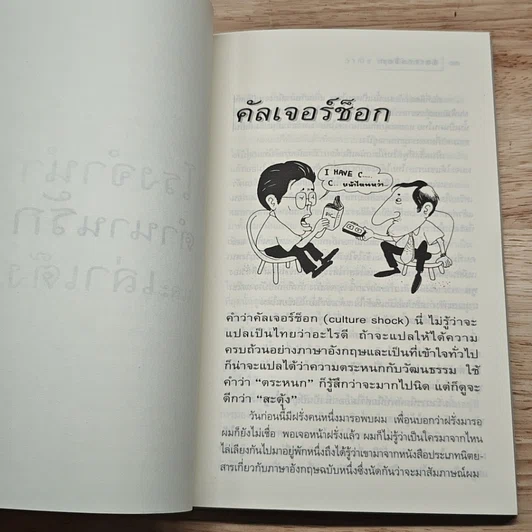 คัลเจอร์ช็อก
I HAVE C....
C...
คำว่าคัลเจอร์ช็อก (culture shock) นี่ ไม่รู้ว่าจะ
แปลเป็นไทยว่าอะไรดี ถ้าจะแปลให้ได้ความ
ครบถ้วนอย่างภาษาอังกฤษและเป็นที่เข้าใจทั่วไป
ก็น่าจะแปลได้ว่าความตระหนกกับวัฒนธรรม ใช้
คำว่า “ตระหนก” ก็รู้สึกว่าจะมากไปนิด แต่ก็ดูจะ
ดีกว่า “สะดุ้ง”
วันก่อนนี้มีฝรั่งคนหนึ่งมารอพบผม เพื่อนบอกว่าฝรั่งมารอ
ผมก็ยังไม่เชื่อ พอเจอหน้าฝรั่งแล้ว ผมก็ไม่รู้ว่าเป็นใครมาจากไหน
ไล่เลียงกันไปมาอยู่พักหนึ่งถึงได้รู้ว่าเขามาจากหนังสือประเภทนิตย-
สารเกี่ยวกับภาษาอังกฤษฉบับหนึ่งซึ่งนัดกันว่าจะมาสัมภาษณ์ผม
โรงจำนำ
ตำนานรัก
และเล่าเต๊ง